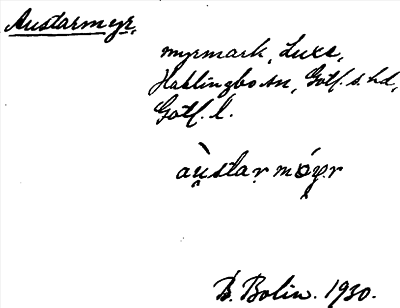 Austarmyr,
myrmark, Luxs,
Hablingbo sn, Gotl. s. hd,
Gotl. l.
B. Bolin. 1930.